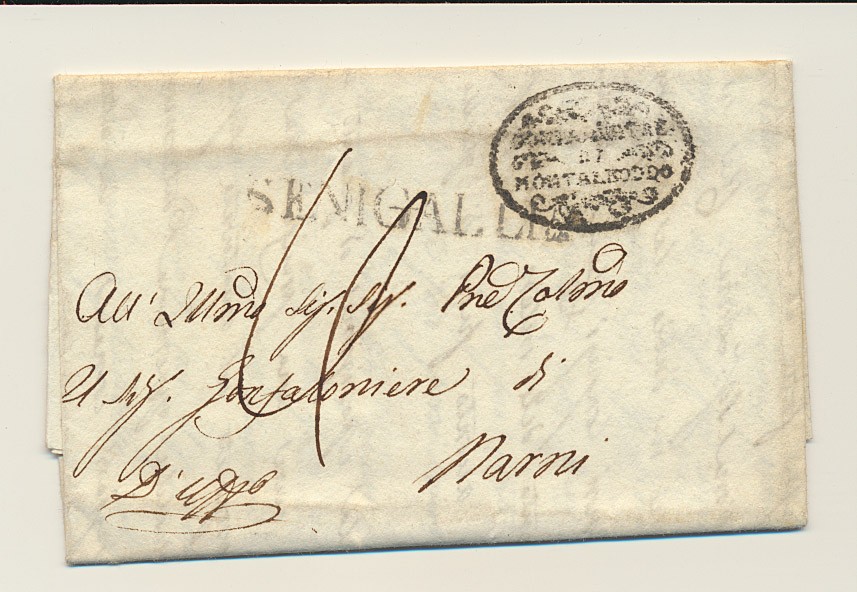 DI
MONTALBODDO
SENIGALLIA
All' Illmo Sig. Sig. Pne Colmo
Il Sig. Gonfaloniere di
Narni
D'uffo